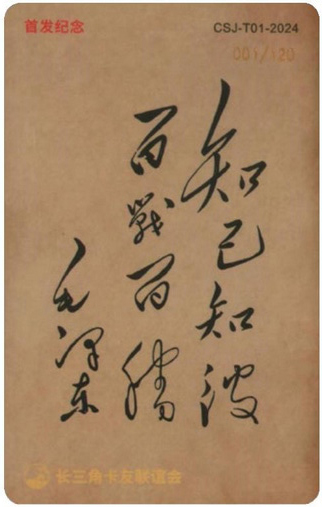 首发纪念
CSJ-T01-2024
001/120
知己知彼
百戰百勝
毛泽东
长三角卡友联谊会